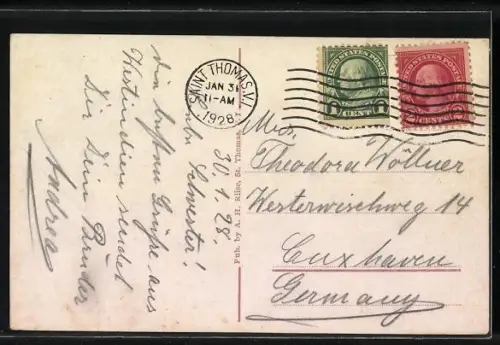 30.1.28.
Schwester!
die besten Grüße aus
Westindien sendet
Dir Dein Bruder
Andrea
SAINT THOMAS, V.I.
JAN 31
11-AM
1928
UNITED STATES POSTAGE
CENT
UNITED STATES POSTAGE
2 CENTS 2
Miss.
Theodora Wöltner
Westerwischweg 14
Cuxhaven
Germany
Pub. by A. H. Riise, St. Thomas